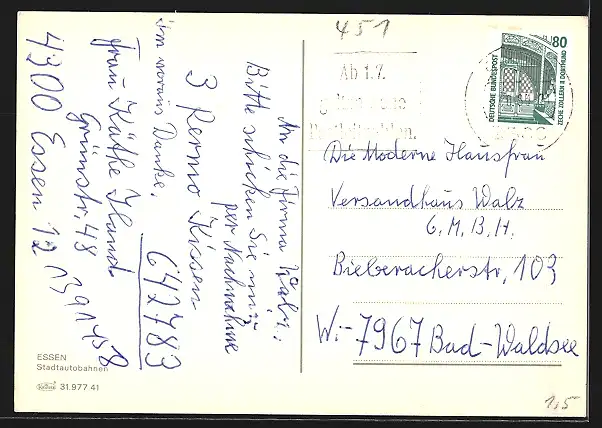 451
Ab 1.7.
80
DEUTSCHE BUNDESPOST
ZECHE ZOLLERN II DORTMUND
An die Firma Walz.
Bitte schicken Sie mir
per Nachnahme
3 Rermo Kissen
im voraus Danke. 642783
Frau Käthe
Grünstr. 48
4300 Essen 12
Die Moderne Hausfrau
Versandhaus Walz
G.M.B.H.
Bieberacherstr, 103
W:-7967 Bad-Waldsee
ESSEN
Stadtautobahnen
31.977 41
1,5